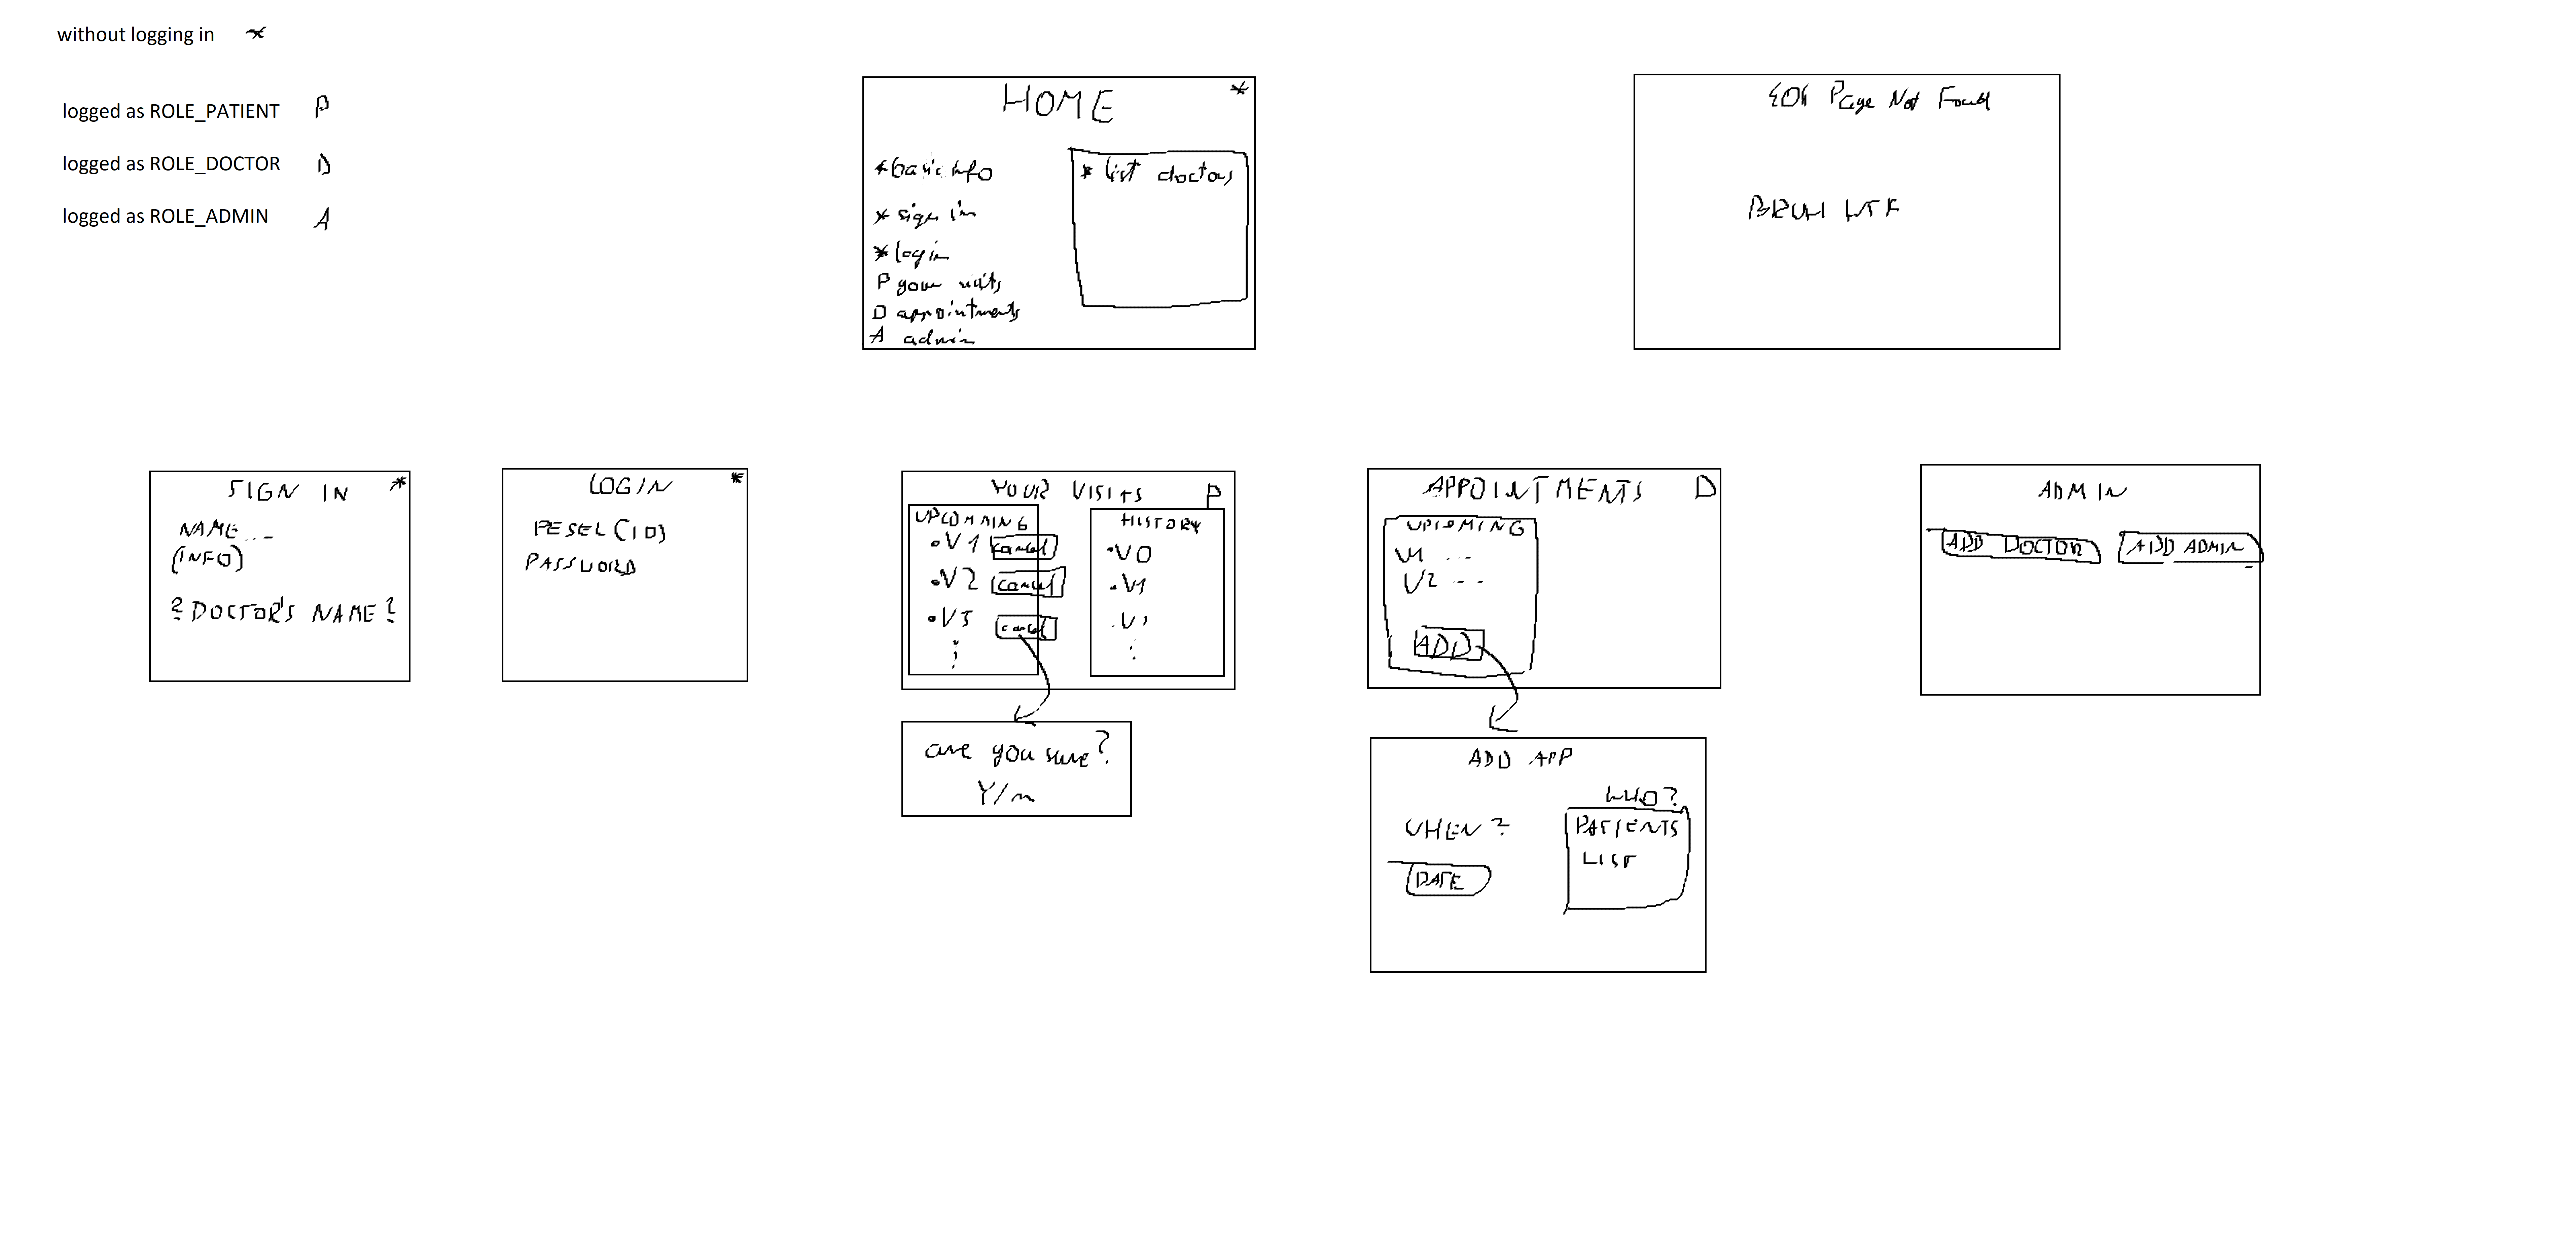 without logging in *
logged as ROLE_PATIENT P
logged as ROLE_DOCTOR D
logged as ROLE_ADMIN A
HOME *
* basic info
* sign in
* login
P your visits
D appointments
A admin
* list doctors
404 Page Not Found
BRUH WTF
SIGN IN *
NAME...
(INFO)
? DOCTOR'S NAME?
LOGIN *
PESEL (ID)
PASSWORD
YOUR VISITS P
UPCOMMING
•V1 cancel
•V2 cancel
•V3 cancel
⋮
HISTORY
•V0
•V1
⋮
are you sure?
Y/n
APPOINTMENTS D
UPCOMING
V1 ...
V2 ...
ADD
ADD APP
WHEN?
DATE
WHO?
PATIENTS
LIST
ADMIN
ADD DOCTOR ADD ADMIN